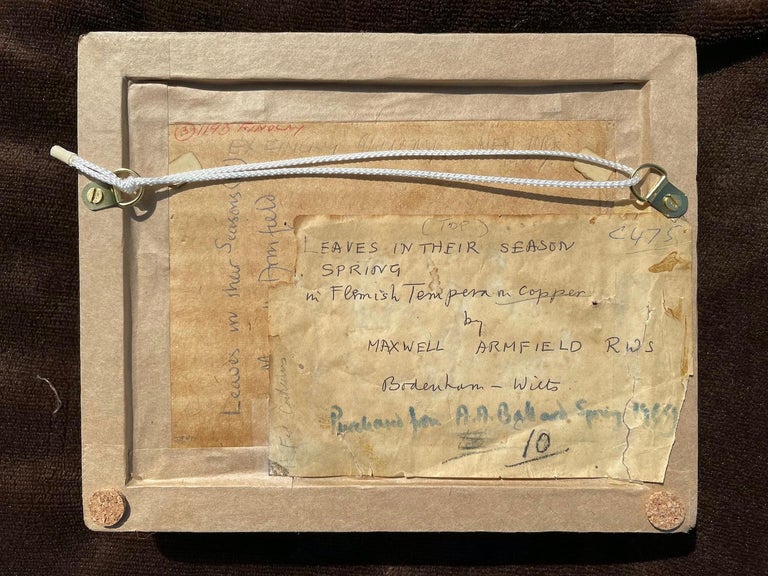 (3) 1143 FINDLAY
Leaves in their Seasons
Armfield
(TOP)
C475
LEAVES IN THEIR SEASON
SPRING
in Flemish Tempera on Copper
by
MAXWELL ARMFIELD RWS
Bodenham - Wilts.
Purchased from A.A. Ballard Spring
10